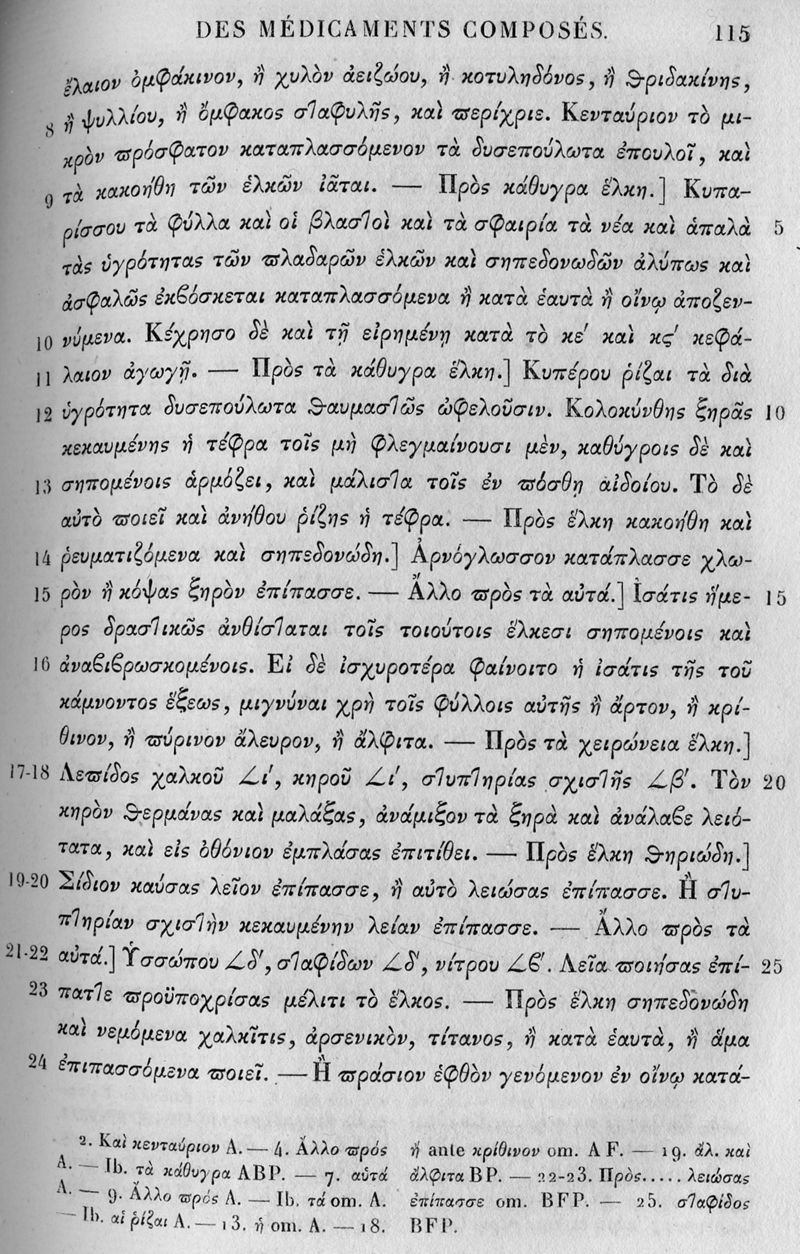 DES MÉDICAMENTS COMPOSÉS. 115
ἔλαιον ὀμφάκινον, ἢ χυλὸν ἀειζώου, ἢ κοτυληδόνος, ἢ θριδακίνης,
8 ἢ ψυλλίου, ἢ ὄμφακος σταφυλῆς, καὶ περίχριε. Κενταύριον τὸ μι-
κρὸν πρόσφατον καταπλασσόμενον τὰ δυσεπούλωτα ἐπουλοῖ, καὶ
9 τὰ κακοήθη τῶν ἑλκῶν ἰᾶται. — Πρὸς κάθυγρα ἕλκη.] Κυπα-
ρίσσου τὰ φύλλα καὶ οἱ βλαστοὶ καὶ τὰ σφαιρία τὰ νέα καὶ ἁπαλὰ 5
τὰς ὑγρότητας τῶν πλαδαρῶν ἑλκῶν καὶ σηπεδονωδῶν ἀλύπως καὶ
ἀσφαλῶς ἐκβόσκεται καταπλασσόμενα ἢ κατὰ ἑαυτὰ ἢ οἴνῳ ἀποζεν-
10 νύμενα. Κέχρησο δὲ καὶ τῇ εἰρημένῃ κατὰ τὸ κε′ καὶ κϛ′ κεφά-
11 λαιον ἀγωγῇ. — Πρὸς τὰ κάθυγρα ἕλκη.] Κυπέρου ῥίζαι τὰ διὰ
12 ὑγρότητα δυσεπούλωτα θαυμαστῶς ὠφελοῦσιν. Κολοκύνθης ξηρᾶς 10
κεκαυμένης ἡ τέφρα τοῖς μὴ φλεγμαίνουσι μὲν, καθύγροις δὲ καὶ
13 σηπομένοις ἁρμόζει, καὶ μάλιστα τοῖς ἐν πόσθῃ αἰδοίου. Τὸ δὲ
αὐτὸ ποιεῖ καὶ ἀνήθου ῥίζης ἡ τέφρα. — Πρὸς ἕλκη κακοήθη καὶ
14 ῥευματιζόμενα καὶ σηπεδονώδη.] Ἀρνόγλωσσον κατάπλασσε χλω-
15 ρὸν ἢ κόψας ξηρὸν ἐπίπασσε. — Ἄλλο πρὸς τὰ αὐτά.] Ἰσάτις ἥμε- 15
ρος δραστικῶς ἀνθίσταται τοῖς τοιούτοις ἕλκεσι σηπομένοις καὶ
16 ἀναβιβρωσκομένοις. Εἰ δὲ ἰσχυροτέρα φαίνοιτο ἡ ἰσάτις τῆς τοῦ
κάμνοντος ἕξεως, μιγνύναι χρὴ τοῖς φύλλοις αὐτῆς ἢ ἄρτον, ἢ κρί-
θινον, ἢ πύρινον ἄλευρον, ἢ ἄλφιτα. — Πρὸς τὰ χειρώνεια ἕλκη.]
17-18 Λεπίδος χαλκοῦ ∠ι′, κηροῦ ∠ι′, στυπτηρίας σχιστῆς ∠β′. Τὸν 20
κηρὸν θερμάνας καὶ μαλάξας, ἀνάμιξον τὰ ξηρὰ καὶ ἀνάλαβε λειό-
τατα, καὶ εἰς ὀθόνιον ἐμπλάσας ἐπιτίθει. — Πρὸς ἕλκη θηριώδη.]
19-20 Σίδιον καύσας λεῖον ἐπίπασσε, ἢ αὐτὸ λειώσας ἐπίπασσε. Ἢ στυ-
πτηρίαν σχιστὴν κεκαυμένην λείαν ἐπίπασσε. — Ἄλλο πρὸς τὰ
21-22 αὐτά.] Ὑσσώπου ∠δ′, σταφίδων ∠δ′, νίτρου ∠β′. Λεῖα ποιήσας ἐπί- 25
23 πατ7ε προϋποχρίσας μέλιτι τὸ ἕλκος. — Πρὸς ἕλκη σηπεδονώδη
καὶ νεμόμενα χαλκῖτις, ἀρσενικὸν, τίτανος, ἢ κατὰ ἑαυτὰ, ἢ ἅμα
24 ἐπιπασσόμενα ποιεῖ. — Ἢ πράσιον ἑφθὸν γενόμενον ἐν οἴνῳ κατά-
2. Καὶ κενταύριον A. — 4. Ἄλλο πρός
A. — Ib. τὰ κάθυγρα ABP. — 7. αὐτά
A. — 9. Ἄλλο πρός A. — Ib. τά om. A.
— Ib. αἱ ῥίζαι A. — 13. ἡ om. A. — 18.
ἤ ante κρίθινον om. A F. — 19. ἄλ. καὶ
ἄλφιτα BP. — 22-23. Πρὸς..... λειώσας
ἐπίπασσε om. BFP. — 25. σταφίδος
BFP.